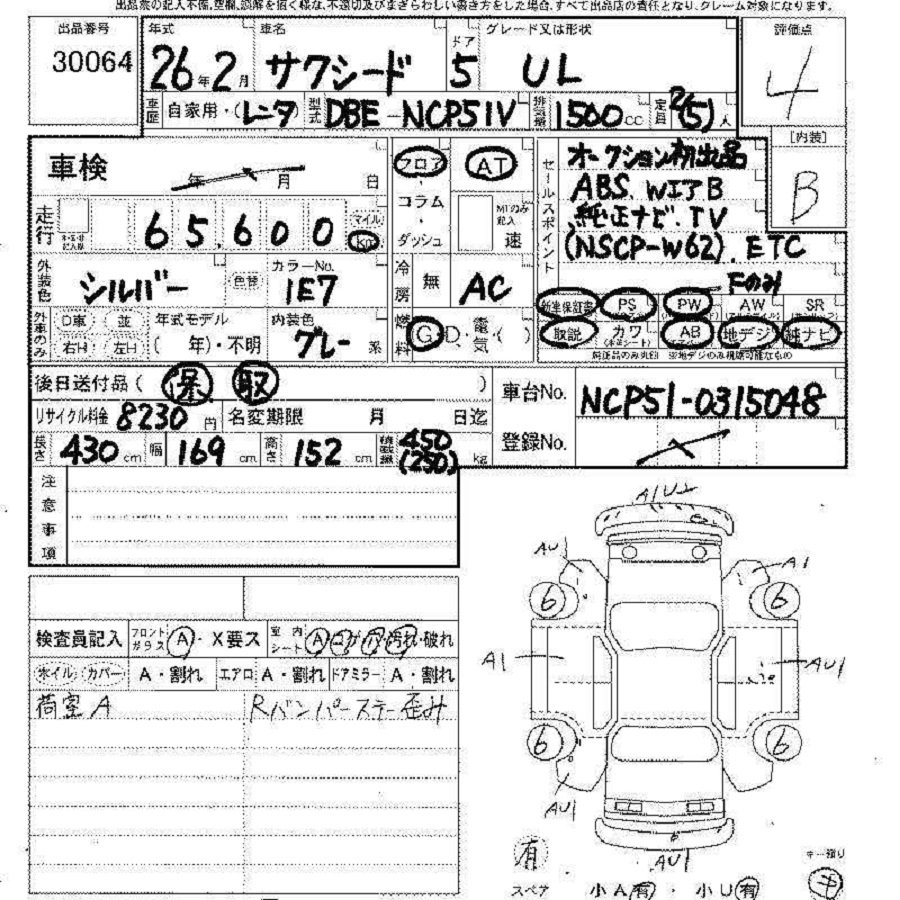 出品票の記入不備,空欄,誤解を招く様な,不適切及びまぎらわしい書き方をした場合,すべて出品店の責任となり,クレーム対象になります。
出品番号 年式 車名 ドア グレード又は形状 評価点
30064 26年2月 サクシード 5 UL 4
車歴 自家用・(レンタ 型式 DBE-NCP51V 排気量 1500cc 定員 2/(5)人
[内装]
B
車検 年 月 日
フロア・コラム・ダッシュ
AT
MTのみ記入 速
セールスポイント
オークション初出品
ABS. WエアB
純正ナビ.TV
(NSCP-W62). ETC
走行 65,600 マイル km
外装色 シルバー 色替 カラーNo. 1E7
冷房 無 AC
Fのみ
新車保証書 PS PW AW SR
外車のみ D車 並 年式モデル 内装色
右H 左H ( 年)・不明 グレー系
燃料 G・D・電気・( )
取説 カワ AB 地デジ 純ナビ
純正品のみ丸印 ※地デジのみ視聴可能なもの
後日送付品( 保 取 )
車台No. NCP51-0315048
リサイクル料金 8230円 名変期限 月 日迄
登録No.
長さ 430cm 幅 169cm 高さ 152cm 積載量 450(250)kg
注意事項
A1U2
AU1
A1
6
6
検査員記入 フロントガラス A・X要ス 室内シート A コゲ 穴 汚れ・破れ
ホイル カバー A・割れ エアロ A・割れ ドアミラー A・割れ
A1
AU1
荷室A Rバンパーステー歪み
6
6
AU1
AU1
有
スペア 小A有・小U有
キー預り
キ